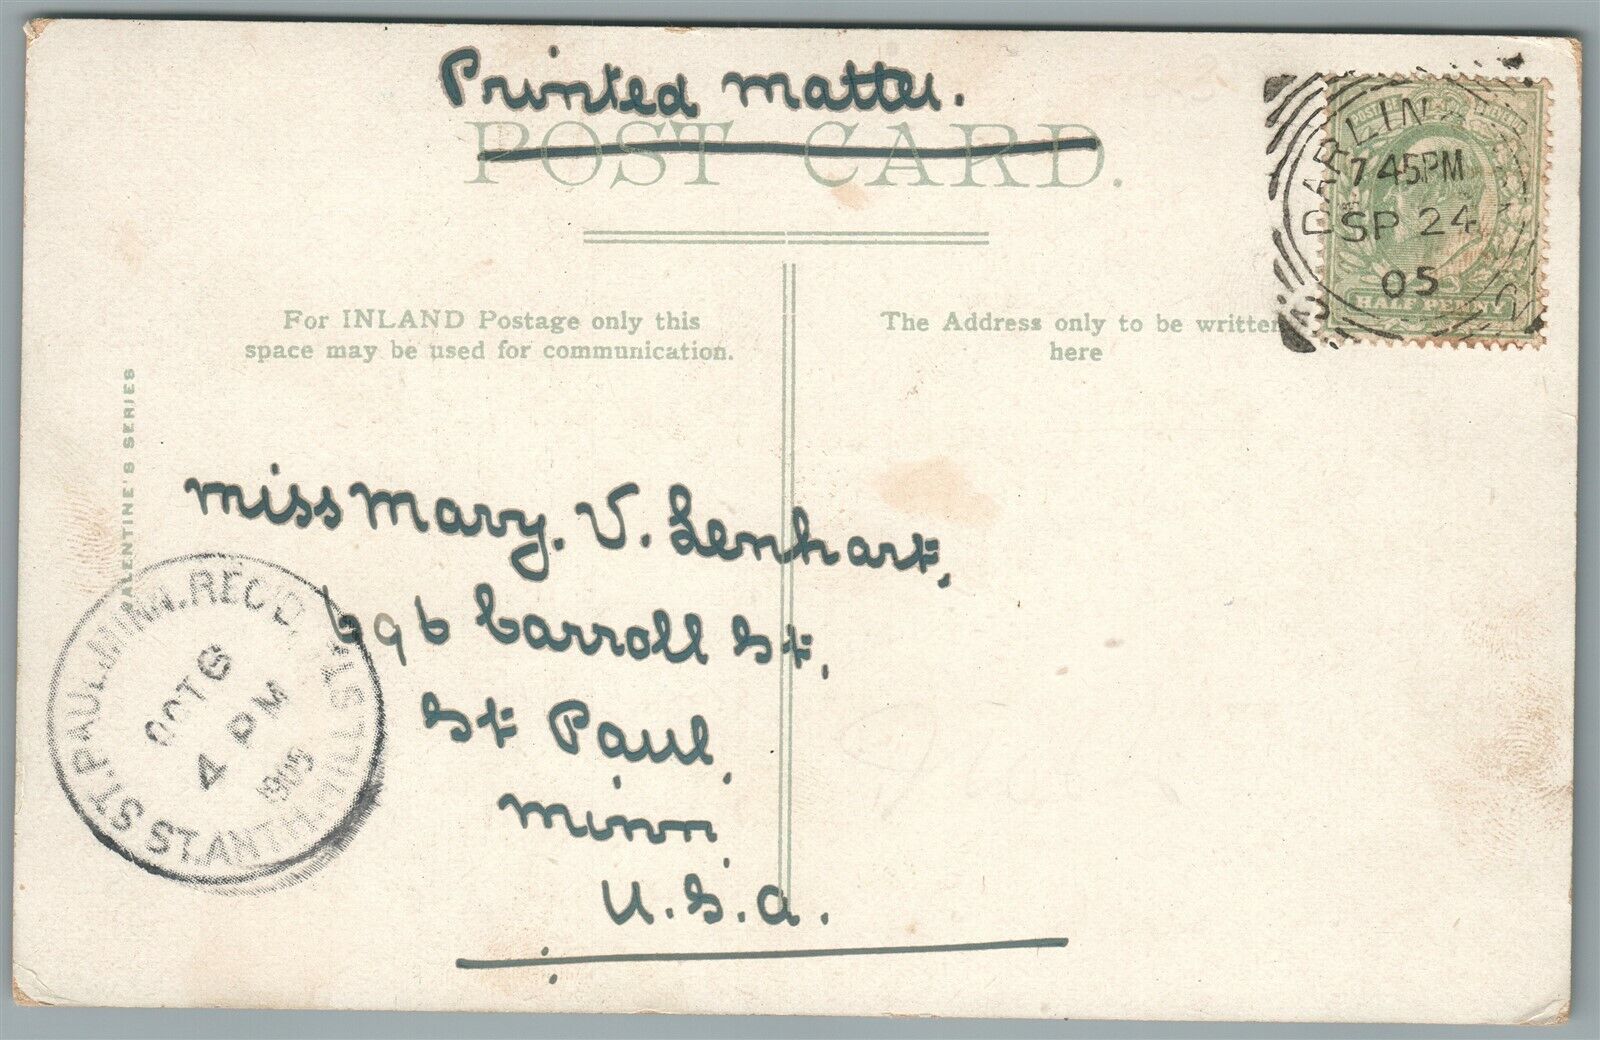 Printed matter.
POST CARD.
DARLINGTON
7 45PM
SP 24
05
HALF PENNY
For INLAND Postage only this
space may be used for communication.
The Address only to be written
here
VALENTINE'S SERIES
Miss Mary. V. Lenhart,
696 Carroll St,
St Paul,
Minn,
U.S.A.
ST. PAUL. MINN. REC'D.
OCT 6
4 PM
1905
ST. ANTH. HILL STA.